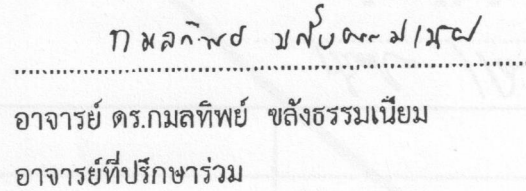 กมลทิพย์ ขลังธรรมเนียม
อาจารย์ ดร.กมลทิพย์ ขลังธรรมเนียม
อาจารย์ที่ปรึกษาร่วม